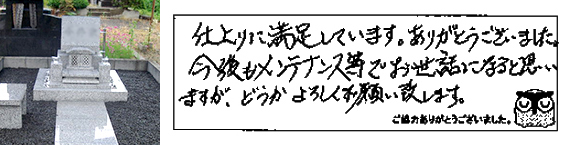 仕上りに満足しています。ありがとうございました。
今後もメンテナンス等でお世話になると思い
ますが、どうかよろしくお願い致します。
ご協力ありがとうございました。